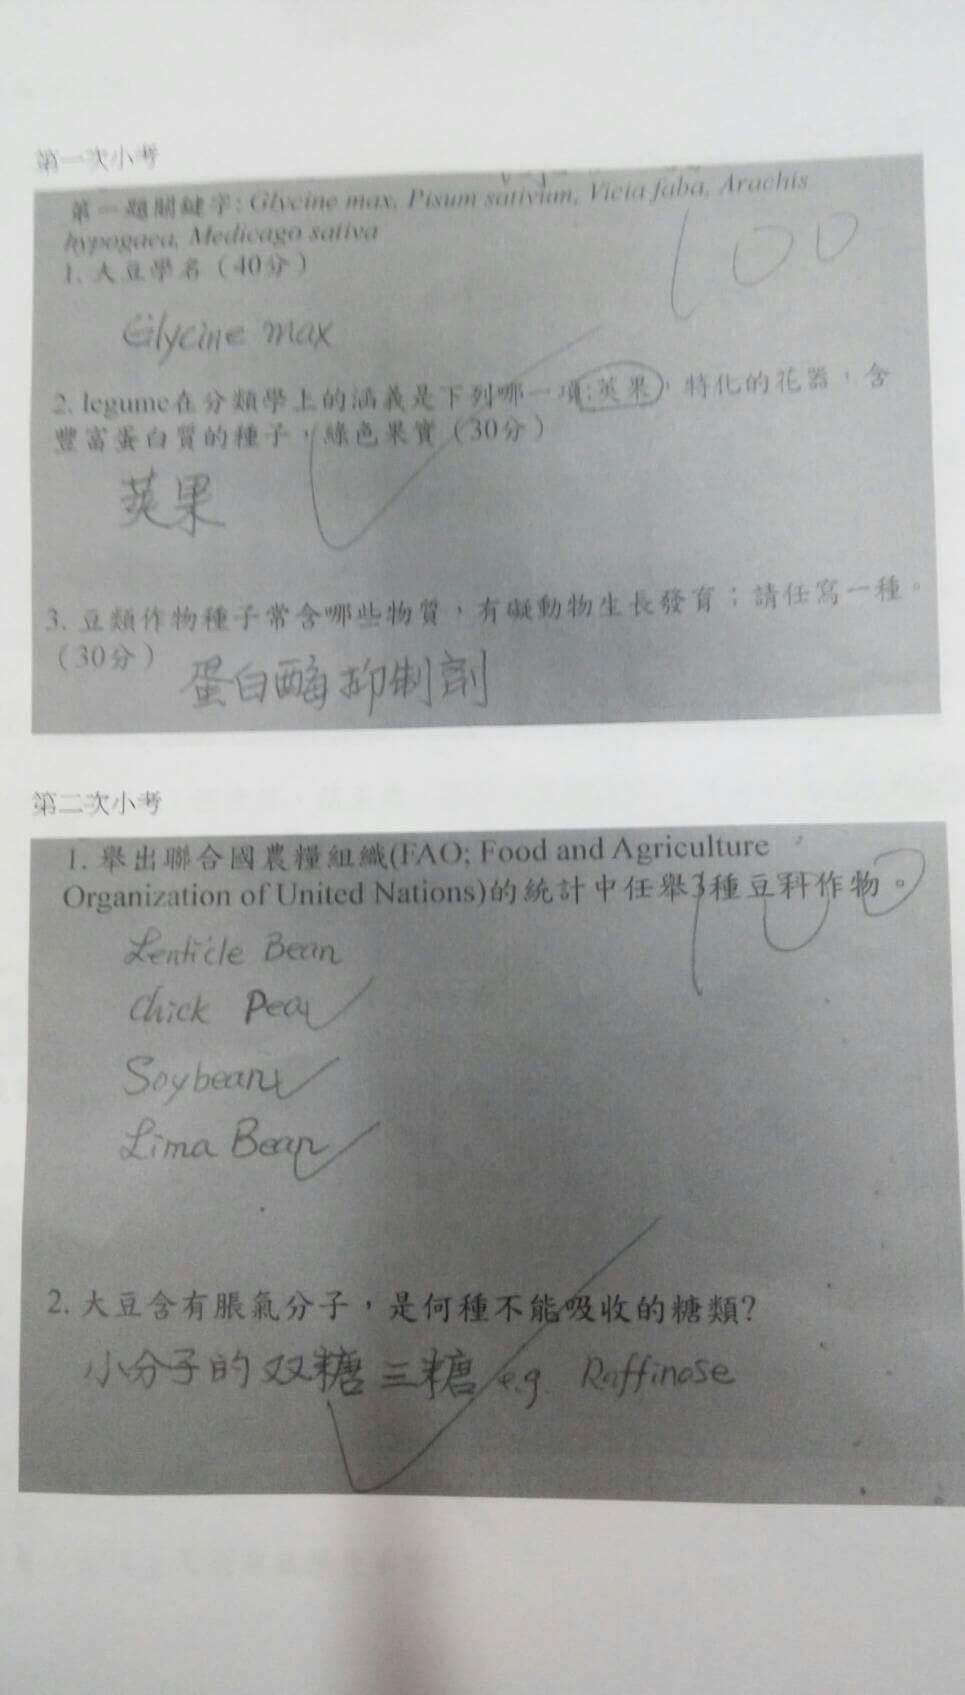 第一次小考
第一題關鍵字: Glycine max, Pisum sativum, Vicia faba, Arachis
hypogaea, Medicago sativa
100
1. 大豆學名（40分）
Glycine max
2. legume在分類學上的涵義是下列哪一項:莢果，特化的花器，含
豐富蛋白質的種子，綠色果實（30分）
莢果
3. 豆類作物種子常含哪些物質，有礙動物生長發育；請任寫一種。
（30分）
蛋白酶抑制劑
第二次小考
1. 舉出聯合國農糧組織(FAO; Food and Agriculture
Organization of United Nations)的統計中任舉3種豆科作物。
100
Lenticle Bean
Chick Pea
Soybean
Lima Bean
2. 大豆含有脹氣分子，是何種不能吸收的糖類?
小分子的双糖三糖 e.g. Raffinose